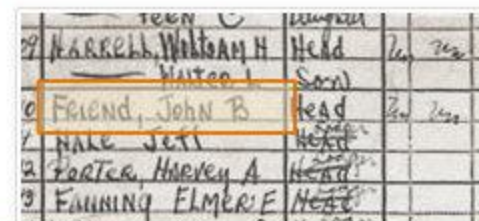 TEEN C Daughter
9 HARRELL, William H Head
WALTER L Son
0 FRIEND, John B Head
HALE Jeff Head
2 PORTER, HARVEY A Head
3 FANNING ELMER E Head